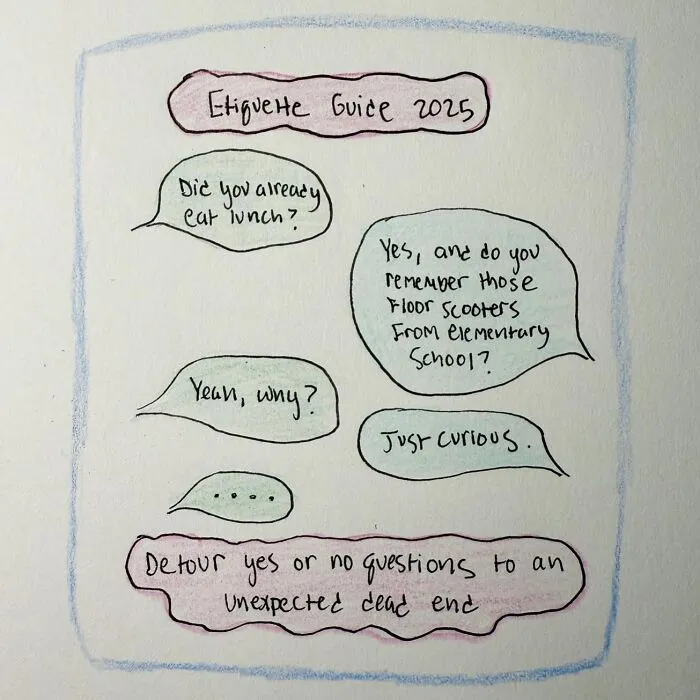 Etiquette Guide 2025
Did you already
eat lunch?
Yes, and do you
remember those
floor scooters
from elementary
school?
Yeah, why?
Just curious.
....
Detour yes or no questions to an
unexpected dead end